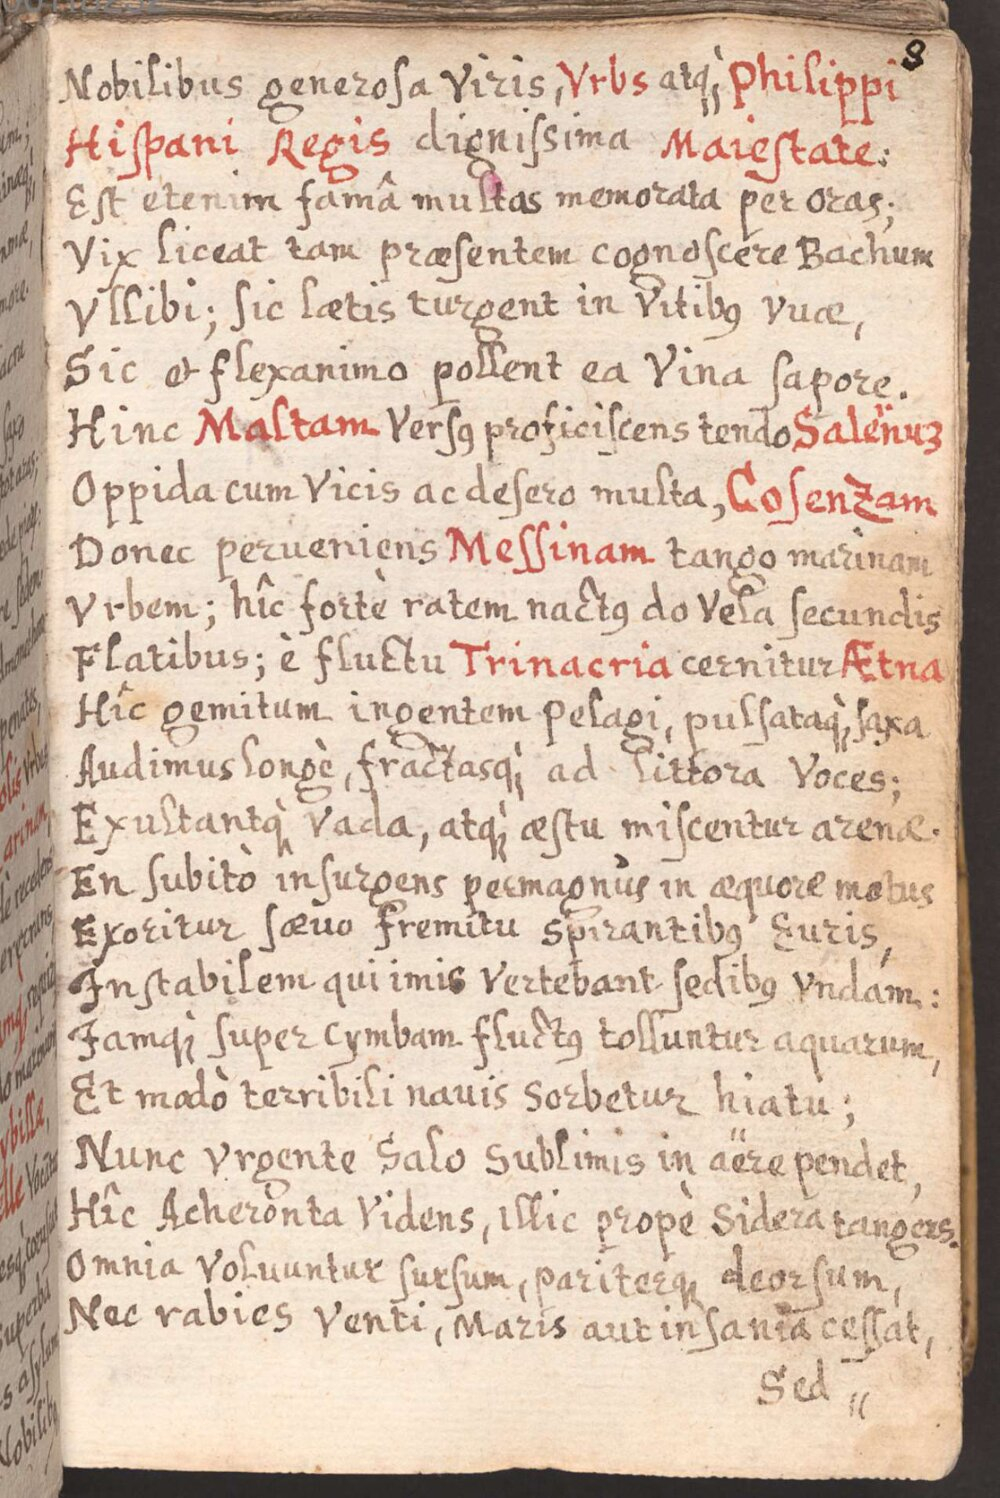 8
Nobilibus generosa Viris, Vrbs atq́; Philippi
Hispani Regis dignissima Maiestate:
Est etenim famâ multas memorata per oras;
Vix liceat tam præsentem cognoscere Bachum
Vllibi; sic lætis turgent in Vitibꝰ vuæ,
Sic et flexanimo pollent ea Vina sapore.
Hinc Maltam Versꝰ proficiscens tendo Salënuꝫ
Oppida cum Vicis ac desero multa, Cosenzam
Donec perueniens Messinam tango marinam
Vrbem; hîc fortè ratem nactꝰ do Vela secundis
Flatibus; è fluctu Trinacria cernitur Ætna
Hîc gemitum ingentem Pelagi, pulsataq̀; saxa
Audimus longè, fractasq̀; ad littora Voces;
Exultantq̀ Vada, atq̀; æstu miscentur arenæ.
En subitò insurgens permagnus in æquore motus
Exoritur sæuo fremitu spirantibꝰ Euris,
Instabilem qui imis Vertebant sedibꝰ vndam:
Jamq̀; super Cymbam fluctꝰ tolluntur aquarum,
Et modò terribili nauis sorbetur hiatu;
Nunc vrgente Salo Sublimis in aëre pendet,
Hîc Acheronta Videns, illic propè Sidera tangens.
Omnia Voluuntur sursum, pariterq; deorsum,
Nec rabies Venti, Maris aut insania cessat,
Sed